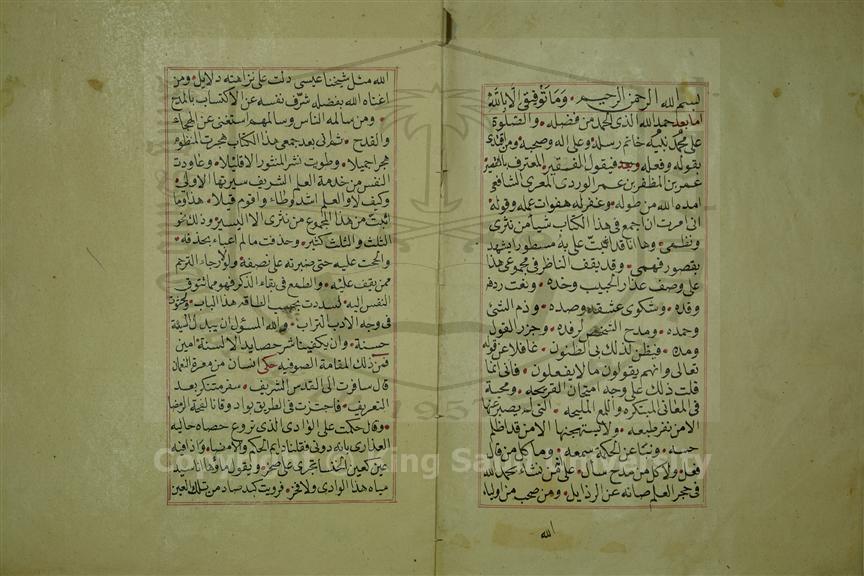 بسم الله الرحمن الرحيم • وما توفيقى الا بالله
اما بعد حمد الله الذى الحمد من فضله • والصلوة
على محمد نبيه خاتم رسله • وعلى اله وصحبه ومن اقتدى
بقوله وفعله وبعد فيقول الفقير • المعترف بالتقصير
عمر بن المظفر بن عمر الوردى المعرى الشافعى
امده الله من طوله • وغفر له هفوات عمله وقوله
انى امرت ان اجمع فى هذا الكتاب شيأ من نثرى
ونظمى • وها انا قد اثبت على به مسطورا يشهد
بقصور فهمى • وقد يقف الناظر فى مجموعى هذا
على وصف عذار الحبيب وخده • ونعت ردفه
وقده • وشكوى عشقه وصده • وذم الشئ
وحمده • ومدح الشخص لرفده • وجزر القول
ومده • فيظن لذلك بى الظنون • غافلا عن قوله
تعالى وانهم يقولون ما لا يفعلون • فانى انما
قلت ذلك على وجه امتحان القريحه • ومحبة
فى المعانى المبتكره واللمع المليحه • التى لم يصبر عنها
الا من نفر طبعه • ولا يستهجنها الا من قد اظلم
حسه • ونبا عن الحكمة سمعه • وما كل من قال
فعل • ولا كل من مدح سأل • على ان من نشاء بحمد الله
فى حجر العلم صانه عن الرذايل • ومن صحب من اولياء
الله
الله مثل شيخنا عيسى دلت على نزاهته دلايل • ومن
اغناه الله بفضله شرف نفسه عن الاكتساب بالمدح
• ومن سالمه الناس وسالمهم استغنى عن الهجاء
والقدح • ثم انى بعد جمعى هذا الكتاب هجرت المنظوم
هجرا جميلا • وطويت نشر المنثور الا قليلا • وعاودت
النفس من خدمة العلم الشريف سيرتها الاولى •
وكيف لا والعلم اشد وطاء واقوم قيلا • هذا وما
اثبت من هذا المجموع من نثرى الا اليسير • وذلك نحو
الثلث والثلث كثير • وحذفت ما لم اعباء بحذفه •
والححت عليه حتى صيرته على نصفه • ولولا رجاء الترحم
ممن يقف عليه • والطمع فى بقاء الذكر فهو مما تتوق
النفس اليه • لسددت بحسب الطاقه هذا الباب • وحثوت
فى وجه الادب التراب • والله المسؤل ان يبدل السيئة
حسنة • وان يكفينا شر حصايد الالسنة امين
فمن ذلك المقامة الصوفيه حكى انسان من معرة النعمان
قال سافرت الى القدس الشريف • سفر متنكر بعد
التعريف • فاجتزت فى الطريق بواد وقانا لفحة الرمضا
• وقال حكمت على الوادى الذى تروع حصاه حاليه
العذارى بانه دونى فقلنا دايم الحكم والامضا • واذا فيه
عين كعين الخنسا تجرى على صخر • ويقول ماؤها انا سيد
مياه هذا الوادى ولا فخر • فرويت كبد صاد من تلك العين
Copyright © King Saud University
1957